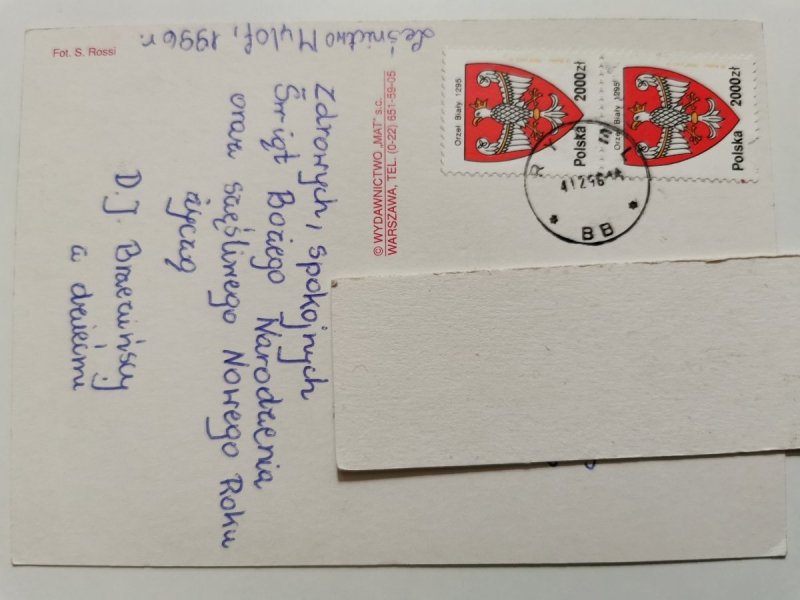 Fot. S. Rossi
Leśnictwo 1996 r.
Zdrowych, spokojnych
Świąt Bożego Narodzenia
oraz szczęśliwego Nowego Roku
życzą
D. J. Brzezińscy
z dziećmi
© WYDAWNICTWO „MAT” s.c.
WARSZAWA, TEL. (0-22) 651-59-05
Orzeł Biały 1295
Polska 2000zł
Orzeł Biały 1295
Polska 2000zł
BB